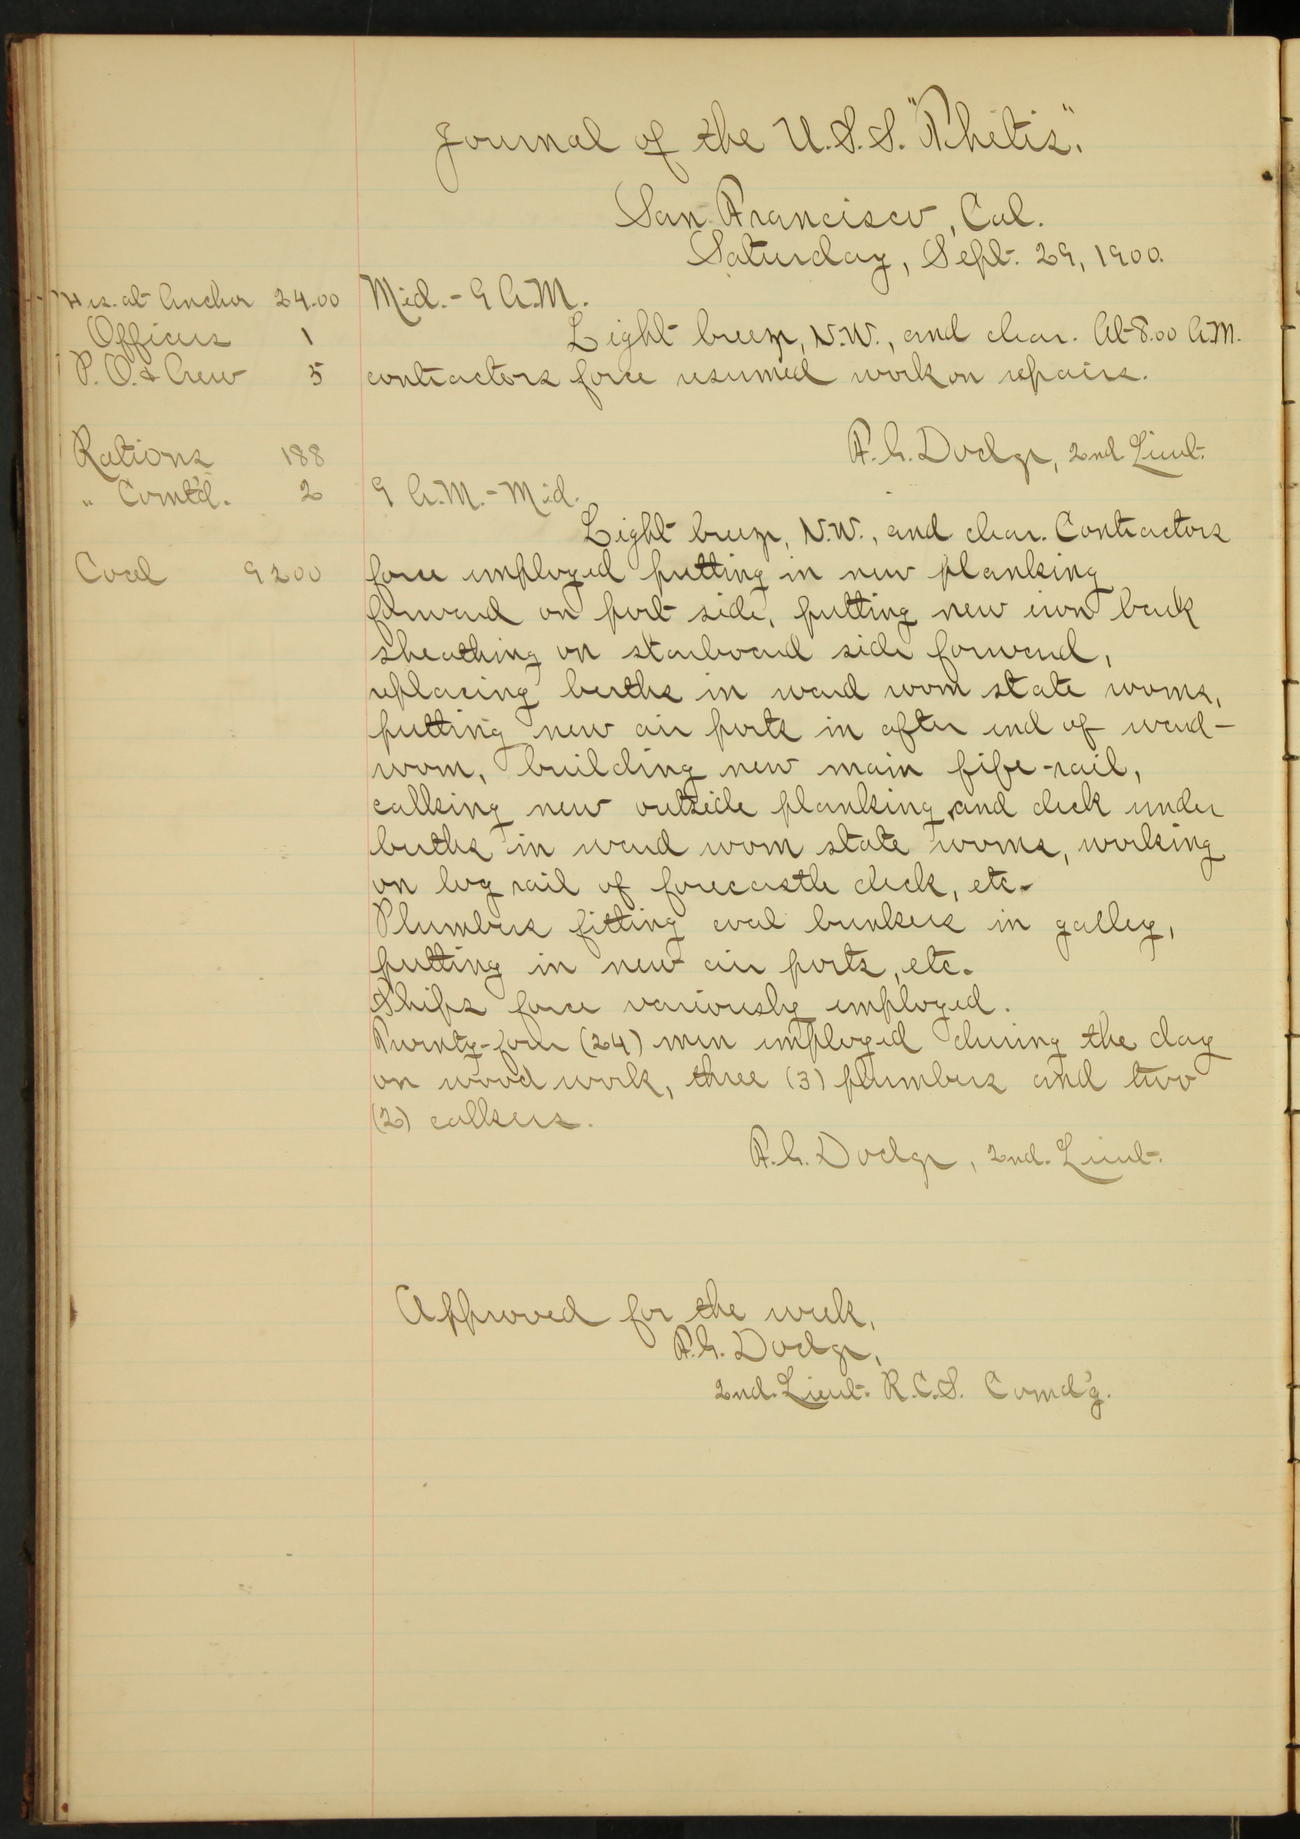 Journal of the U.S.S. "Thetis".
San Francisco, Cal.
Saturday, Sept. 29, 1900.
Hrs. at Anchor 24.00
Officers 1
P. O. & Crew 5
Rations 188
" Comt'd. 2
Coal 9200
Mid. - 9 A.M.
Light breeze, N.W., and clear. At 8.00 A.M.
contractors force resumed work on repairs.
F. G. Dodge, 2nd Lieut.
9 A.M. - Mid.
Light breeze, N.W., and clear. Contractors
force employed putting in new planking
forward on port side, putting new iron bark
sheathing on starboard side forward,
replacing berths in ward room state rooms,
putting new air ports in after end of ward-
room, building new main fife-rail,
calking new outside planking, and deck under
berths in ward room state rooms, working
on log rail of forecastle deck, etc.
Plumbers fitting coal bunkers in galley,
putting in new air ports, etc.
Ships force variously employed.
Twenty-four (24) men employed during the day
on wood work, three (3) plumbers and two
(2) calkers.
F. G. Dodge, 2nd. Lieut.
Approved for the week,
F. G. Dodge,
2nd. Lieut. R.C.S. Comd'g.